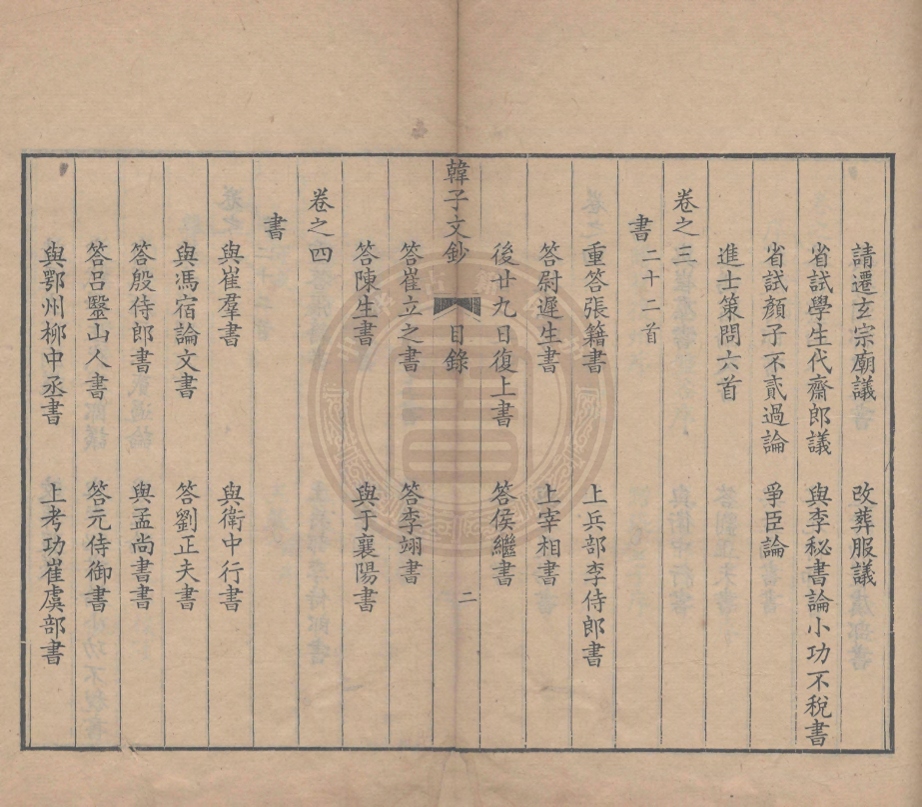 請遷玄宗廟議 改葬服議
省試學生代齋郎議 與李秘書論小功不稅書
省試顏子不貳過論 爭臣論
進士策問六首
卷之三
書二十二首
重答張籍書 上兵部李侍郎書
答尉遲生書 上宰相書
後廿九日復上書 答侯繼書
韓子文鈔 目錄 二
答崔立之書 答李翊書
答陳生書 與于襄陽書
卷之四
書
與崔羣書 與衛中行書
與馮宿論文書 答劉正夫書
答殷侍郎書 與孟尚書書
答呂毉山人書 答元侍御書
與鄂州柳中丞書 上考功崔虞部書